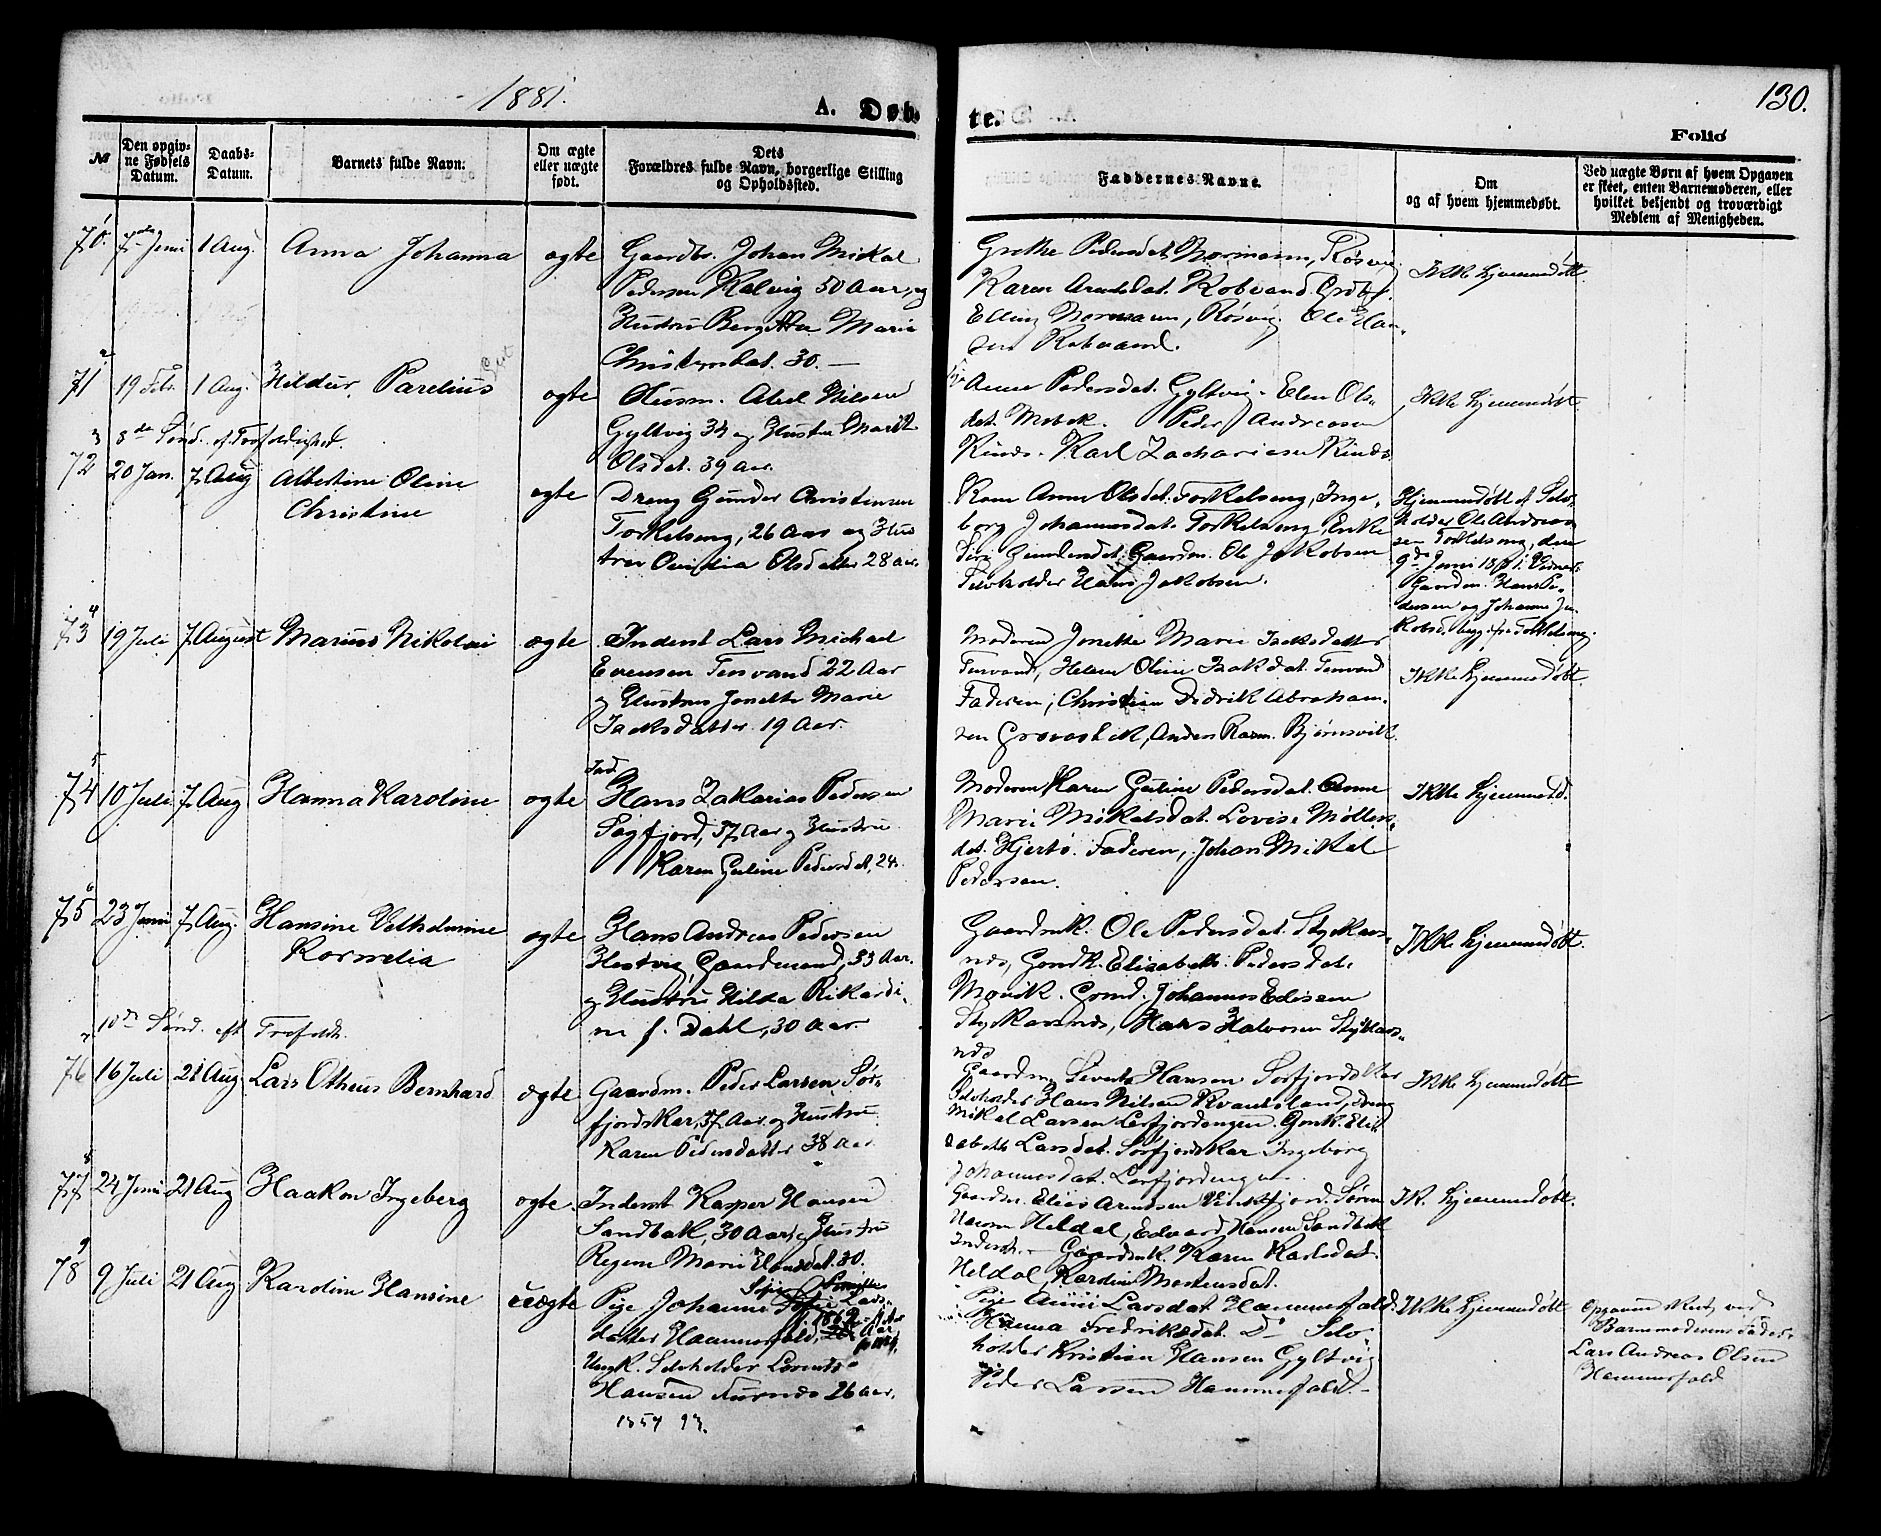 1881.
A. Døb-
te.
130.
Folio
№
Den opgiv-
ne Fødsels
Datum.
Daabs-
Datum.
Barnets fulde Navn.
Om ægte
eller uægte
født.
Dets
Forældres fulde Navn, borgerlige Stilling
og Opholdssted.
Faddernes Navne.
Om
og af hvem hjemmedøbt.
Ved uægte Børn af hvem Opgaven
er skeet, enten Barnemoderen, eller
hvilket bekjendt og troværdigt
Medlem af Menigheden.
70. 7de Juni 1 Aug. Anna Johanna ægte
Gaardbr. Johan Mikal
Pedersen Kalvig 50 Aar, og
Hustru Bergitta Marie
30.
Grethe Pedersdat. Normann, Røsvig
Karen Arntsdat. Kobvand.
Elling Normann, Røsvig. Ole Han-
sen Kobvand.
Ikke hjemmedøbt
71 19 Febr. 1 Aug. Hildur Parelius ægte
Husm. Abel Nilsen
Gyltvig 34 og Hustru Marit
Olsdat. 39 Aar.
Anne Pedersdat. Gyltvig. Elen Ols-
dat. Mobek. Peder Andreasen
Rinds. Karl Zachariasen Rinds.
Ikke hjemmedøbt.
8de Sønd. ef. Trefoldighed.
72 20 Jan. 7 Aug Albertine Oline
Christine
ægte
Dreng Gunder Christensen
Torkelseng, 26 Aar og Hus
tru Olsdatter 28 Aar.
Kone Anne Olsdat. Torkelseng, Inge-
borg Johannesdat. Torkelseng, Enke
Siri Gundersdat. Gaardm. Ole Jakobsen
Selvholder Hans Jakobsen.
Hjemmedøbt af Selv-
holder Ole Andrea
sen Torkelseng, den
9de Juni 1881.
Gaardm. Hans Pe-
dersen og Johanne Ja-
kobsd. begge fra Torkelseng.
73 19 Juli 7 August Marius Nikolai ægte
Inderst Lars Michael
Evensen Tørsvand 22 Aar
og Hustru Jonette Marie
Isaksdatter 19 Aar.
Moderen Jonette Marie Isaksdatter
Tørvand, Helene Oline Isaksdat. Tørvand
Faderen, Christian Didrik Abraham-
sen Anders Rasm. Bjørnsvik.
Ikke hjemmedøbt.
74 10 Juli 7 Aug Hanna Karoline ægte
Ind.
Hans Zakarias Pedersen
Sagfjord, 37 Aar og Hustru
Karen Guline Pedersdat, 24.
Moderen Karen Guline Pedersdat. Anne
Marie Mikalsdat. Lovise Møllers-
dat. Hjertø. Faderen, Johan Mikal
Pedersen.
Ikke hjemmed.
75 23 Juni 7 Aug. Hansine Vilhelmine
Kornelia
ægte
Hans Andreas Pedersen
Hestvig, Gaardmand, 33 Aar.
og Hustru Hilda Rikardi-
ne f. Dahl, 30 Aar.
Gaardmk. Ole Pedersdat. Styrkes-
næs, Gmdk. Elisabeth Pedersdat.
Movik. Gmd. Johannes Edisen
Styrkesnæs, Hans Halvorsen Styrkes-
næs
Ikke hjemmedøbt.
10de Sønd. eft Trefoldh.
76 16 Juli 21 Aug. Lars Otheus Bernhard ægte
Gaardm. Peder Larsen Sør-
fjordskar, 37 Aar og Hustru
Karen Pedersdatter 38 Aar
Gaardm. Sivert Hansen Sørfjordskar
Selvholder Hans Nilsen Kvantoland, Dreng
Mikal Larsen Lerfjordengen. Gmk. Eli-
sabeth Larsdat. Sørfjordskar Ingeborg
Johannesdat. Lerfjordengen.
Ikke hjemmedøbt
77 24 Juni 21 Aug Haakon Ingeberg ægte.
Inderst Kasper Hansen
Sandbak, 30 Aar og Hustru
Regine Marie Hansdat. 30.
Gaardm. Elias Arntsen Vinkfjord. Søren
Heldal, Edvard Hansen Sandbak
Inderst. Gaardmk. Karen Karlsdat.
Heldal, Karoline Mortensdat.
Ik. hjemmedøbt.
78 9 Juli 21 Aug Karoline Hansine uægte
Pige Johanne Sofie Lars-
datter Hammerfald,
Ungk. Selvholder Lorents
Hansen Furnæs 26 Aar.
Pige Larsdat. Hammerfald.
Hanna Fredriksdat. Do Selv-
holder Kristian Hansen Gyltvig
Peder Larsen Hammerfald.
Ikke hjemmedøbt
Opgaven skeet ved
Barnemoderens Fader,
Lars Andreas Olsen
Hammerfald